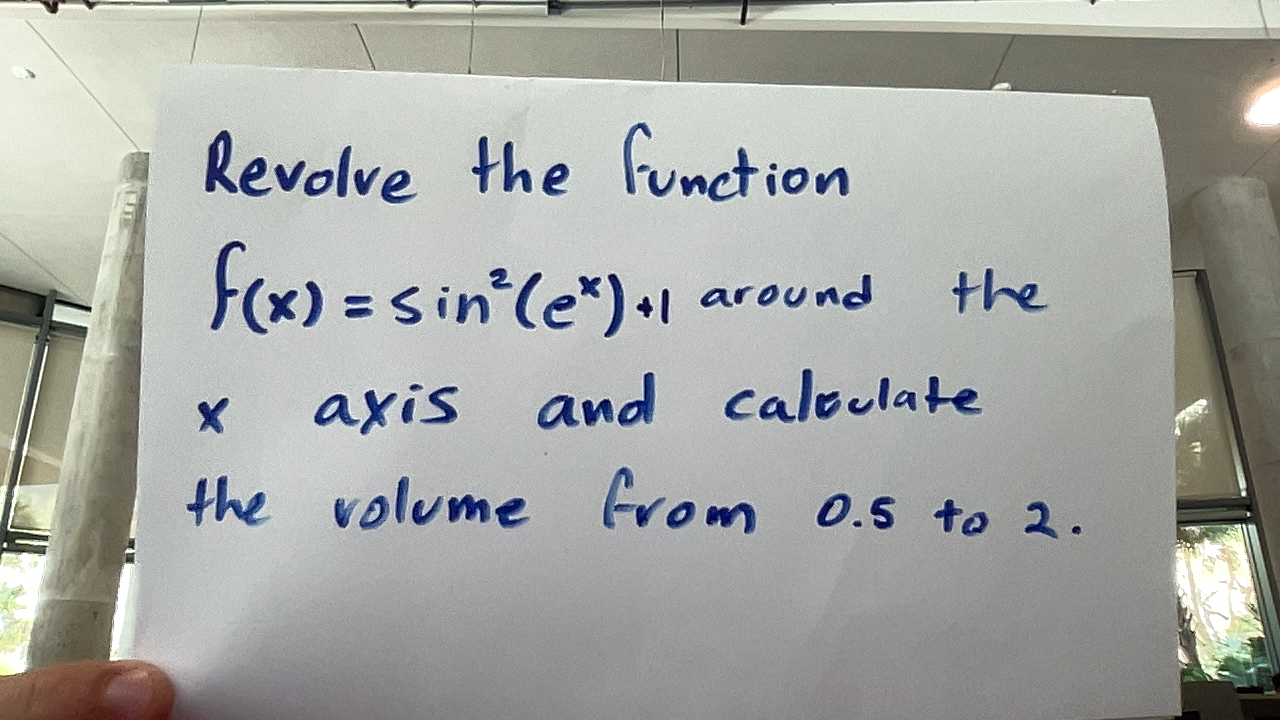 Revolve the function
f(x) = sin²(eˣ)+1 around the
x axis and calculate
the volume from 0.5 to 2.